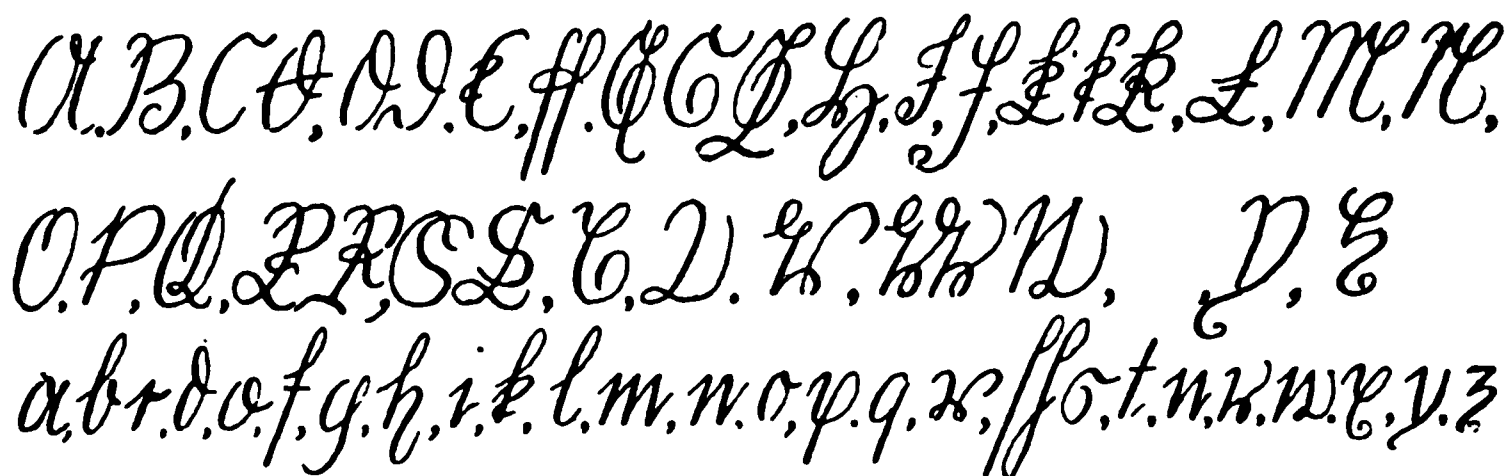 A. B, C C, D D. E, ff. G G G, H, I, J, K k K, L, M, N,
O, P, Q, R R, S S, T, U. V, W W, Y, Z
a, b, c. d, e. f, g, h, i, k, l, m, n. o, p. q, r, ſ ſ s, t. u, v, w. x, y. z